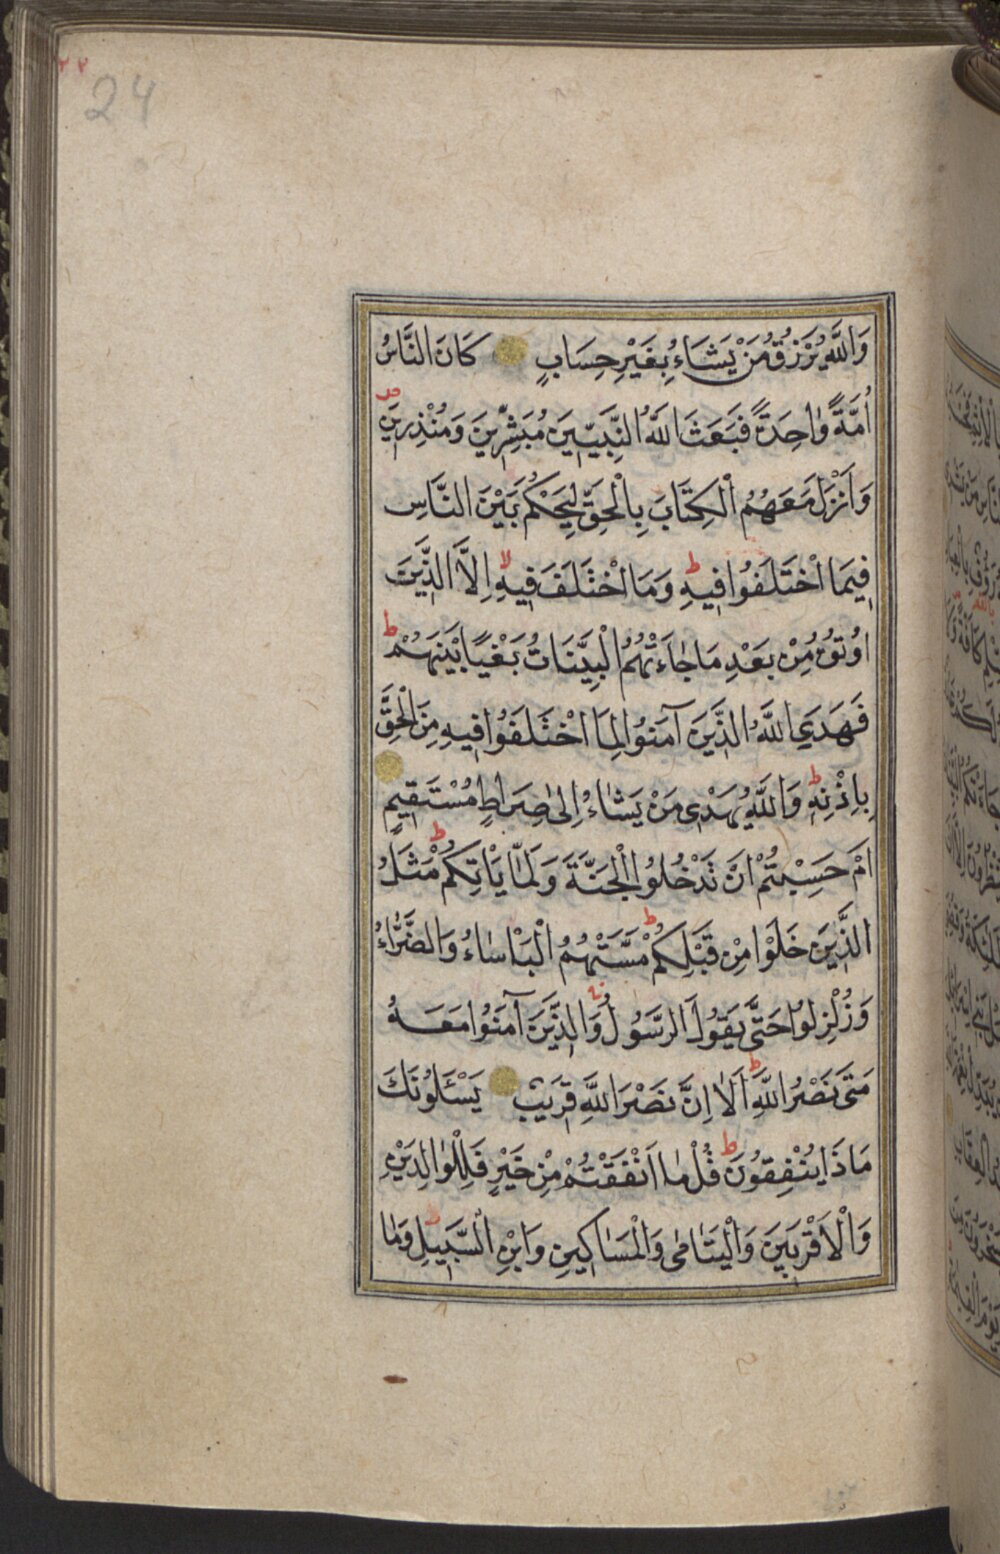 ٢٣
24
وَاللّٰهُ يَرْزُقُ مَنْ يَشَاءُ بِغَيْرِ حِسَابٍ كَانَ النَّاسُ
اُمَّةً وَاحِدَةً فَبَعَثَ اللّٰهُ النَّبِيّٖينَ مُبَشِّرٖينَ وَمُنْذِرٖينَ
وَاَنْزَلَ مَعَهُمُ الْكِتَابَ بِالْحَقِّ لِيَحْكُمَ بَيْنَ النَّاسِ
فٖيمَا اخْتَلَفُوا فٖيهِ ط وَمَا اخْتَلَفَ فٖيهِ لا اِلَّا الَّذٖينَ
اُوتُوهُ مِنْ بَعْدِ مَا جَاءَتْهُمُ الْبَيِّنَاتُ بَغْيًا بَيْنَهُمْ ط
فَهَدَى اللّٰهُ الَّذٖينَ آمَنُوا لِمَا اخْتَلَفُوا فٖيهِ مِنَ الْحَقِّ
بِاِذْنِهٖ ط وَاللّٰهُ يَهْدٖى مَنْ يَشَاءُ اِلٰى صِرَاطٍ مُسْتَقٖيمٍ
اَمْ حَسِبْتُمْ اَنْ تَدْخُلُوا الْجَنَّةَ وَلَمَّا يَاْتِكُمْ ط مَثَلُ
الَّذٖينَ خَلَوْا مِنْ قَبْلِكُمْ ط مَسَّتْهُمُ الْبَاْسَاءُ وَالضَّرَّاءُ
وَزُلْزِلُوا حَتّٰى يَقُولَ الرَّسُولُ وَالَّذٖينَ آمَنُوا مَعَهُ
مَتٰى نَصْرُ اللّٰهِ ط اَلَا اِنَّ نَصْرَ اللّٰهِ قَرٖيبٌ يَسْـَٔلُونَكَ
مَاذَا يُنْفِقُونَ ط قُلْ مَا اَنْفَقْتُمْ مِنْ خَيْرٍ فَلِلْوَالِدَيْنِ
وَالْاَقْرَبٖينَ وَالْيَتَامٰى وَالْمَسَاكٖينِ وَابْنِ السَّبٖيلِ ط وَمَا